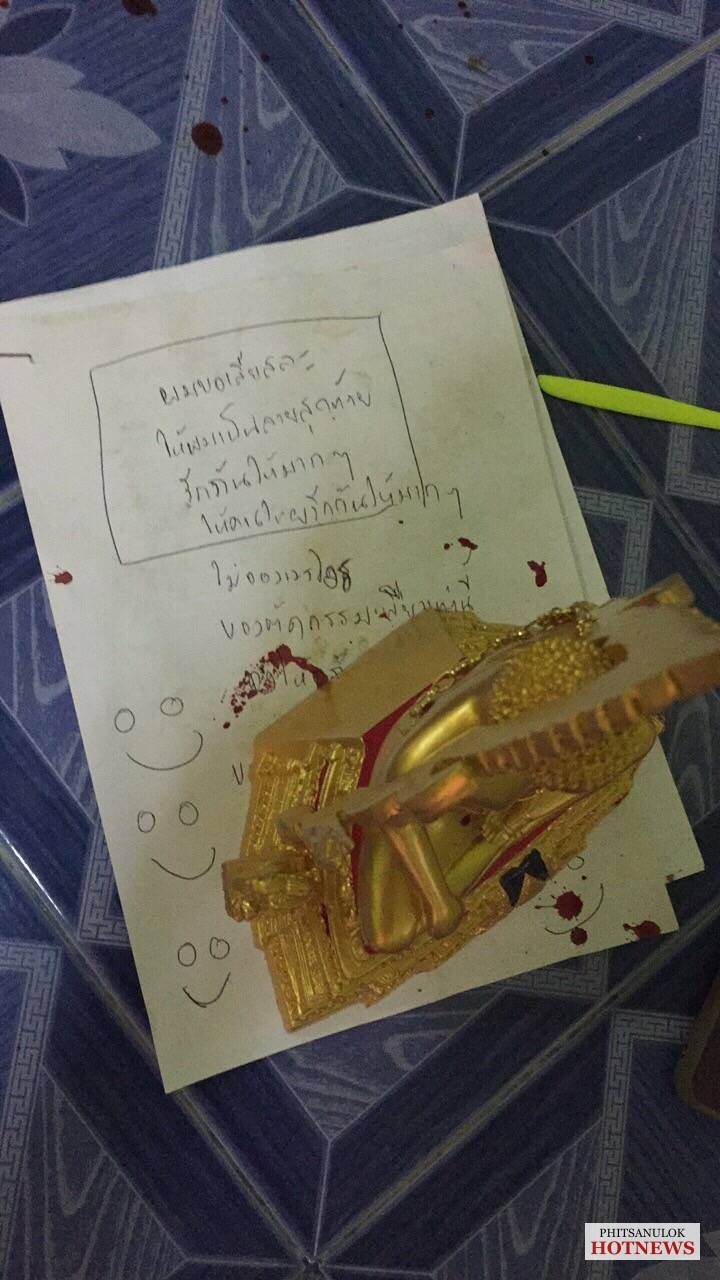 ผมขอเสียสละ
ให้ผมเป็นลายสุดท้าย
รักกันให้มากๆ
ให้คนไทยรักกันให้มากๆ
ไม่จองเวร
ของตัดกรรมเพียงเท่านี้
PHITSANULOK
HOTNEWS